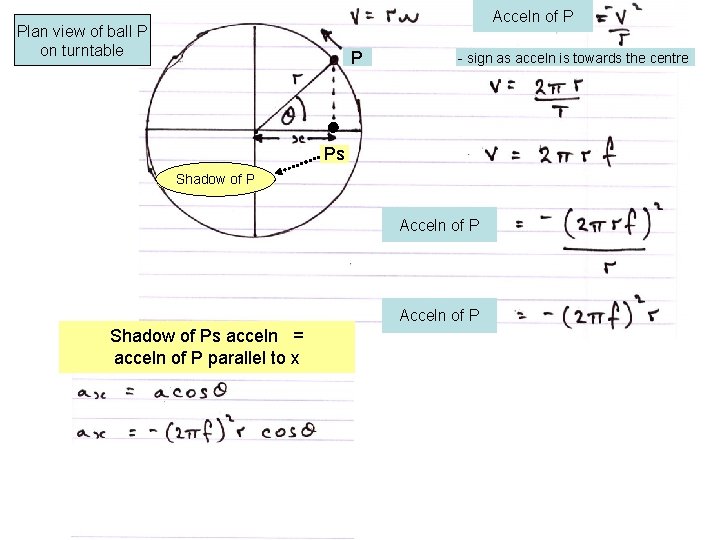 Plan view of ball P
on turntable
v = rω
Acceln of P = -v²/r
P
- sign as acceln is towards the centre
r
θ
v = 2πr/T
x
Ps
v = 2πrf
Shadow of P
Acceln of P = -(2πrf)²/r
Acceln of P = -(2πf)²r
Shadow of Ps acceln =
acceln of P parallel to x
ax = a cosθ
ax = -(2πf)² r cosθ